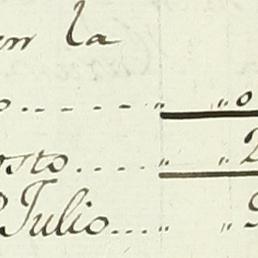 en la
o..... „ „ 0
osto..... „ „ 2
Julio.... „ „